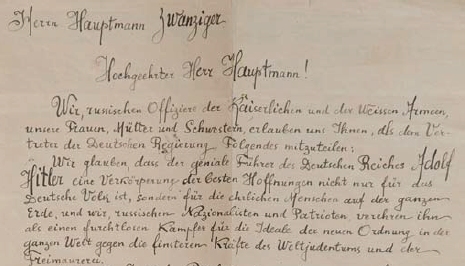 Herrn Hauptmann Zwanziger
Hochgeehrter Herr Hauptmann!
Wir, russischen Offiziere der Kaiserlichen und der Weissen Armeen,
unsere Frauen, Mütter und Schwestern, erlauben uns Ihnen, als dem Ver-
treter der Deutschen Regierung Folgendes mitzuteilen:
Wir glauben, dass der geniale Führer des Deutschen Reiches Adolf
Hitler eine Verkörperung der besten Hoffnungen nicht nur für das
Deutsche Volk ist, sondern für die ehrlichen Menschen auf der ganzen
Erde, und wir, russischen Nazionalisten und Patrioten verehren ihn
als einen furchtlosen Kämpfer für die Ideale der neuen Ordnung in der
ganzen Welt gegen die finsteren Kräfte des Weltjudentums und der
Freimaurerei.